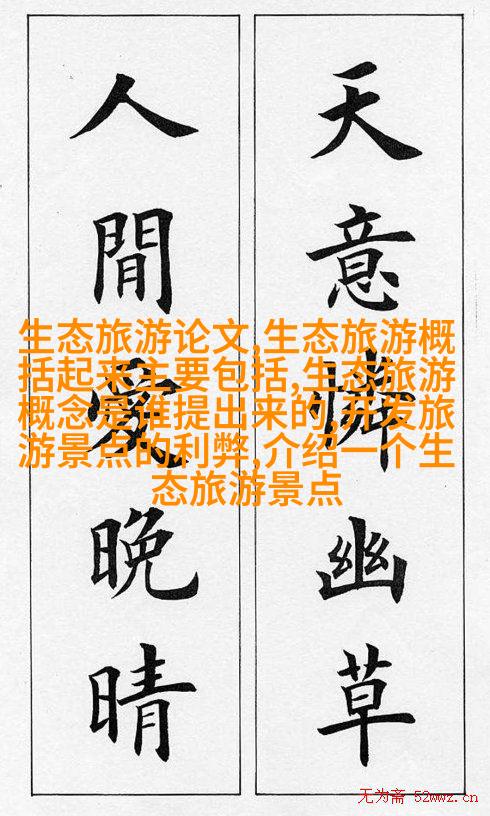 天意憐幽草
人間愛晚晴
生态旅游论文,生态旅游概
括起来主要包括,生态旅游
概念是谁提出来的,开发旅
游景点的利弊,介绍一个生
态旅游景点
无为斋 52wwz.cn